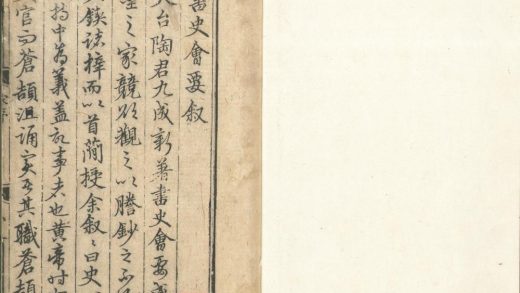 書史會要叙
天台陶君九成新著書史會要
之家競欲觀之以謄鈔之不
鋟諸梓而以首簡授余叙々曰史
持中為義蓋記事者也黃帝時
官而蒼頡沮誦實居其職蒼頡